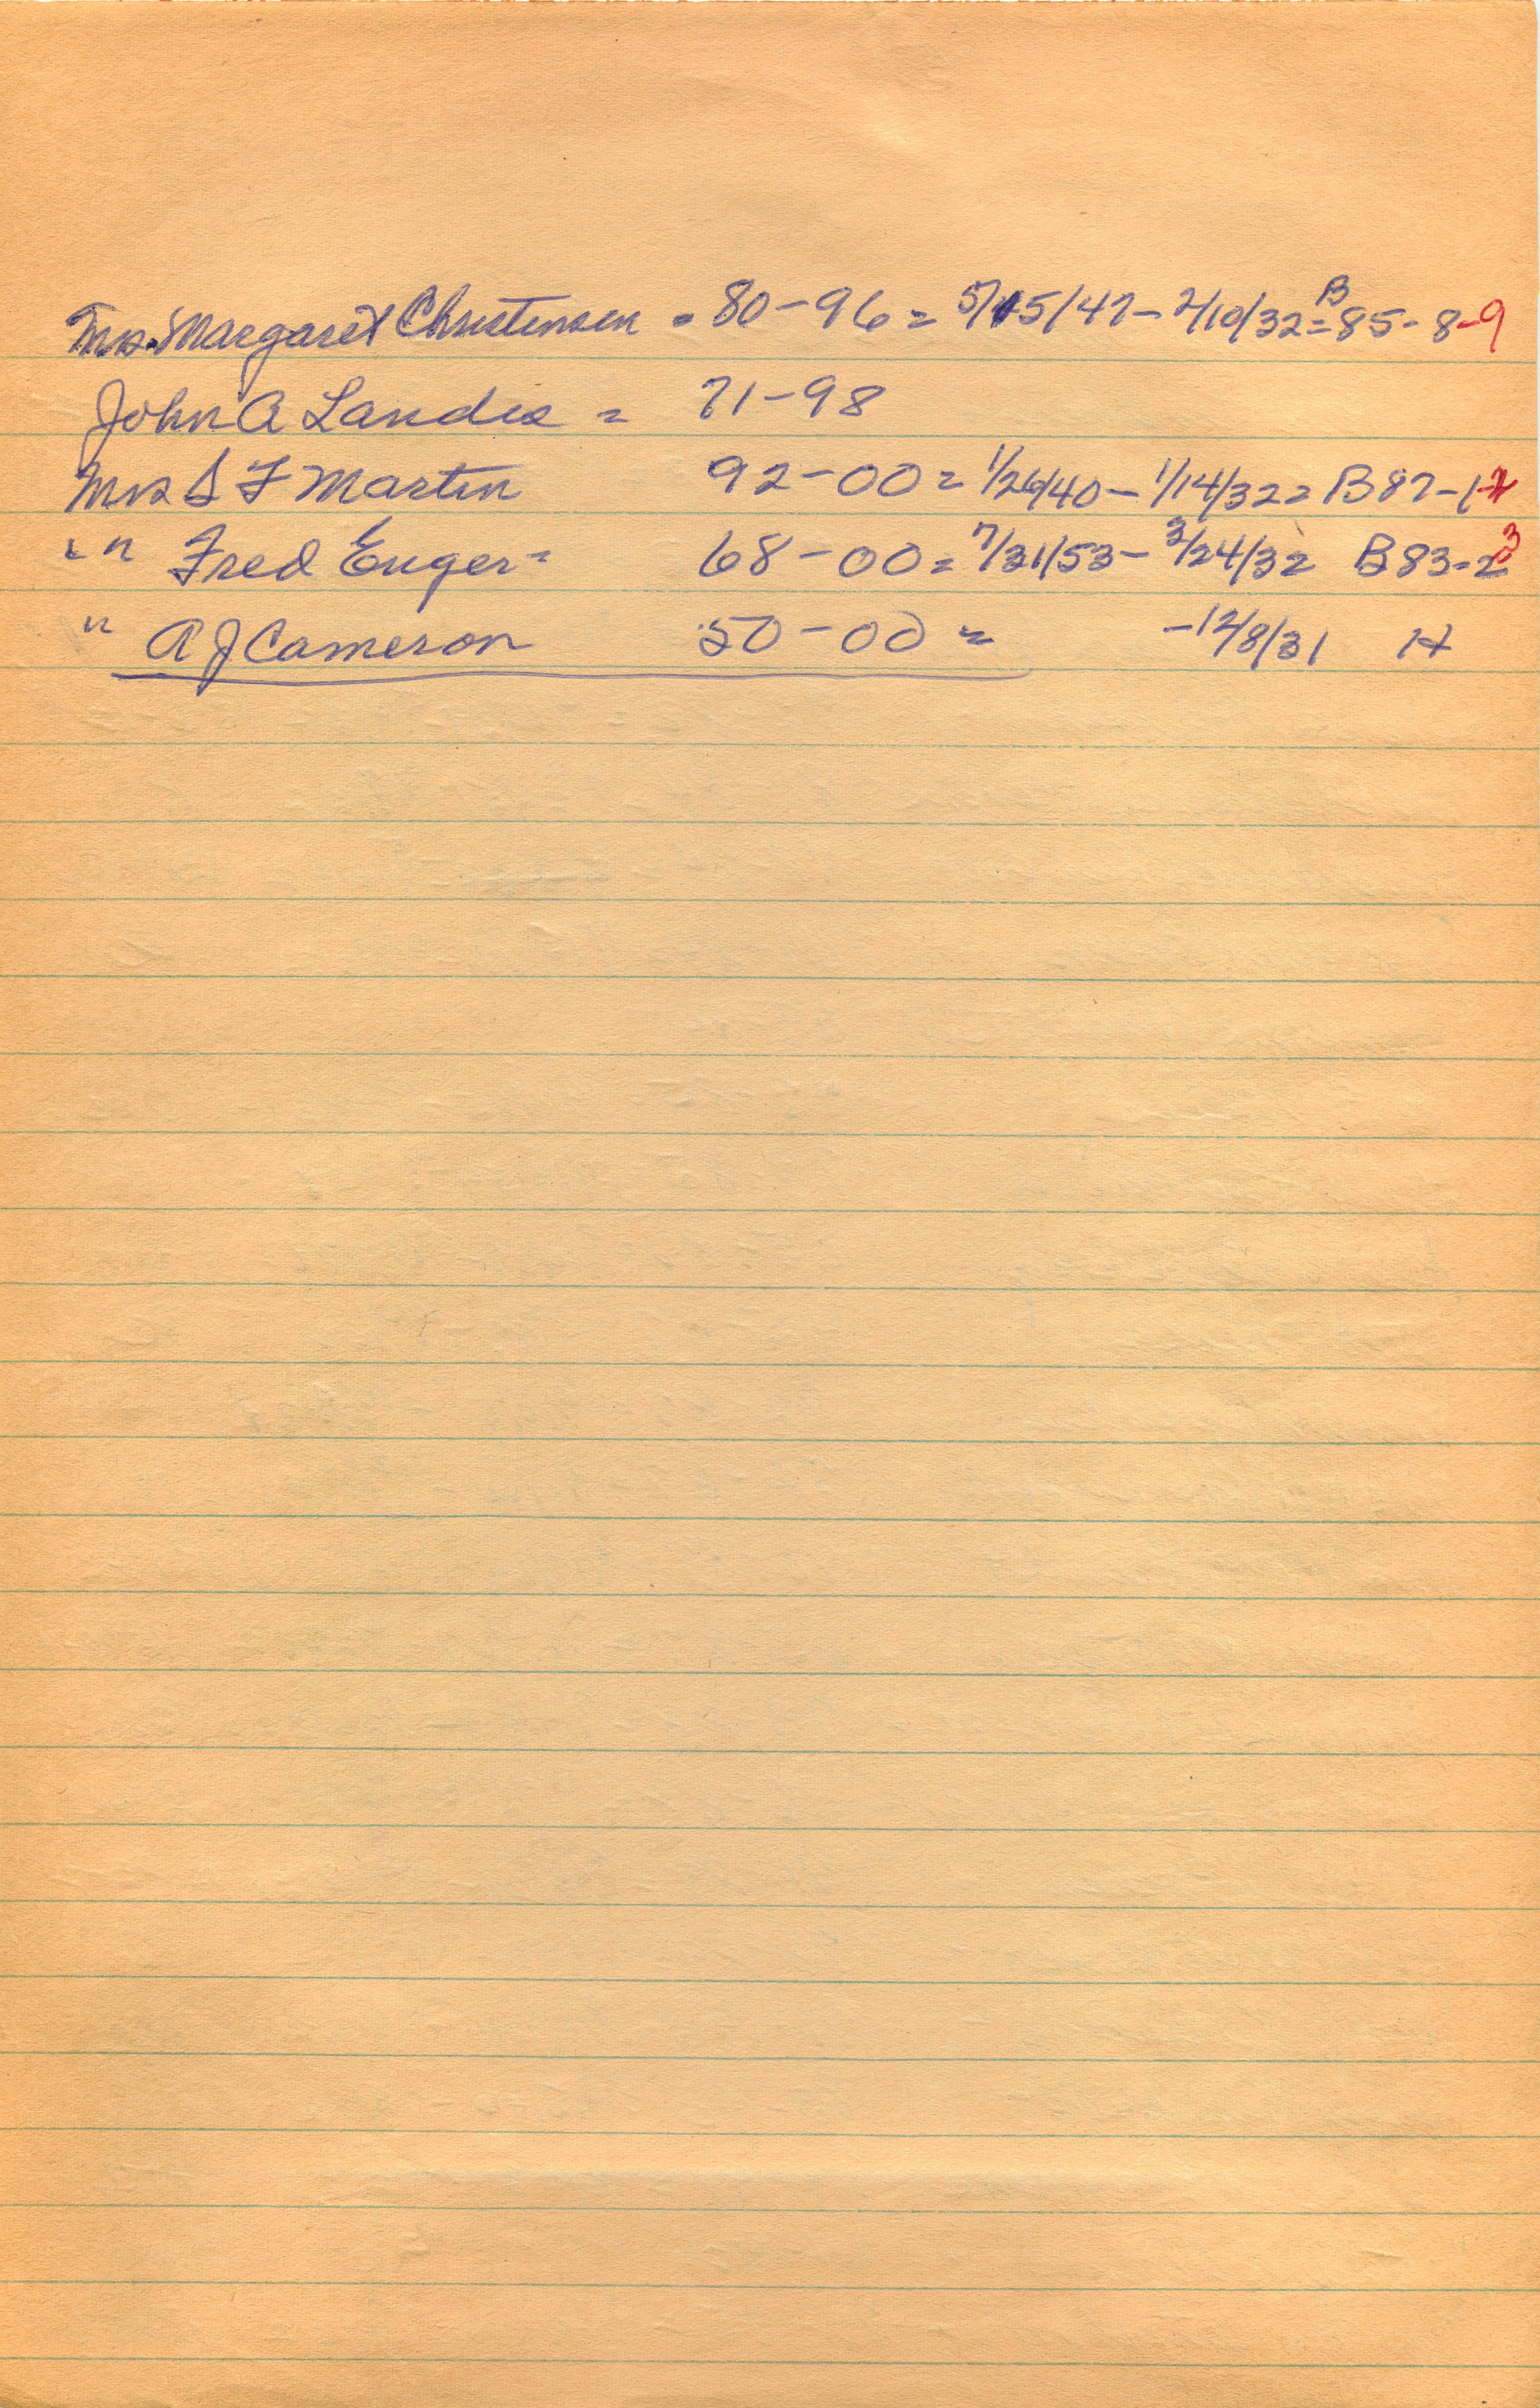 Mrs. Margaret Christensen = 80-96 = 5/15/47- 2/10/32 = B 85-8-9
John A Landis = 71-98
Mrs S F Martin 92-00 = 1/26/40 - 1/14/32 = B 87-1-2
" " Fred Enger = 68-00 = 7/31/53 - 3/24/32 B 83-2-3
" A J Cameron 50-00 = -12/8/31 H